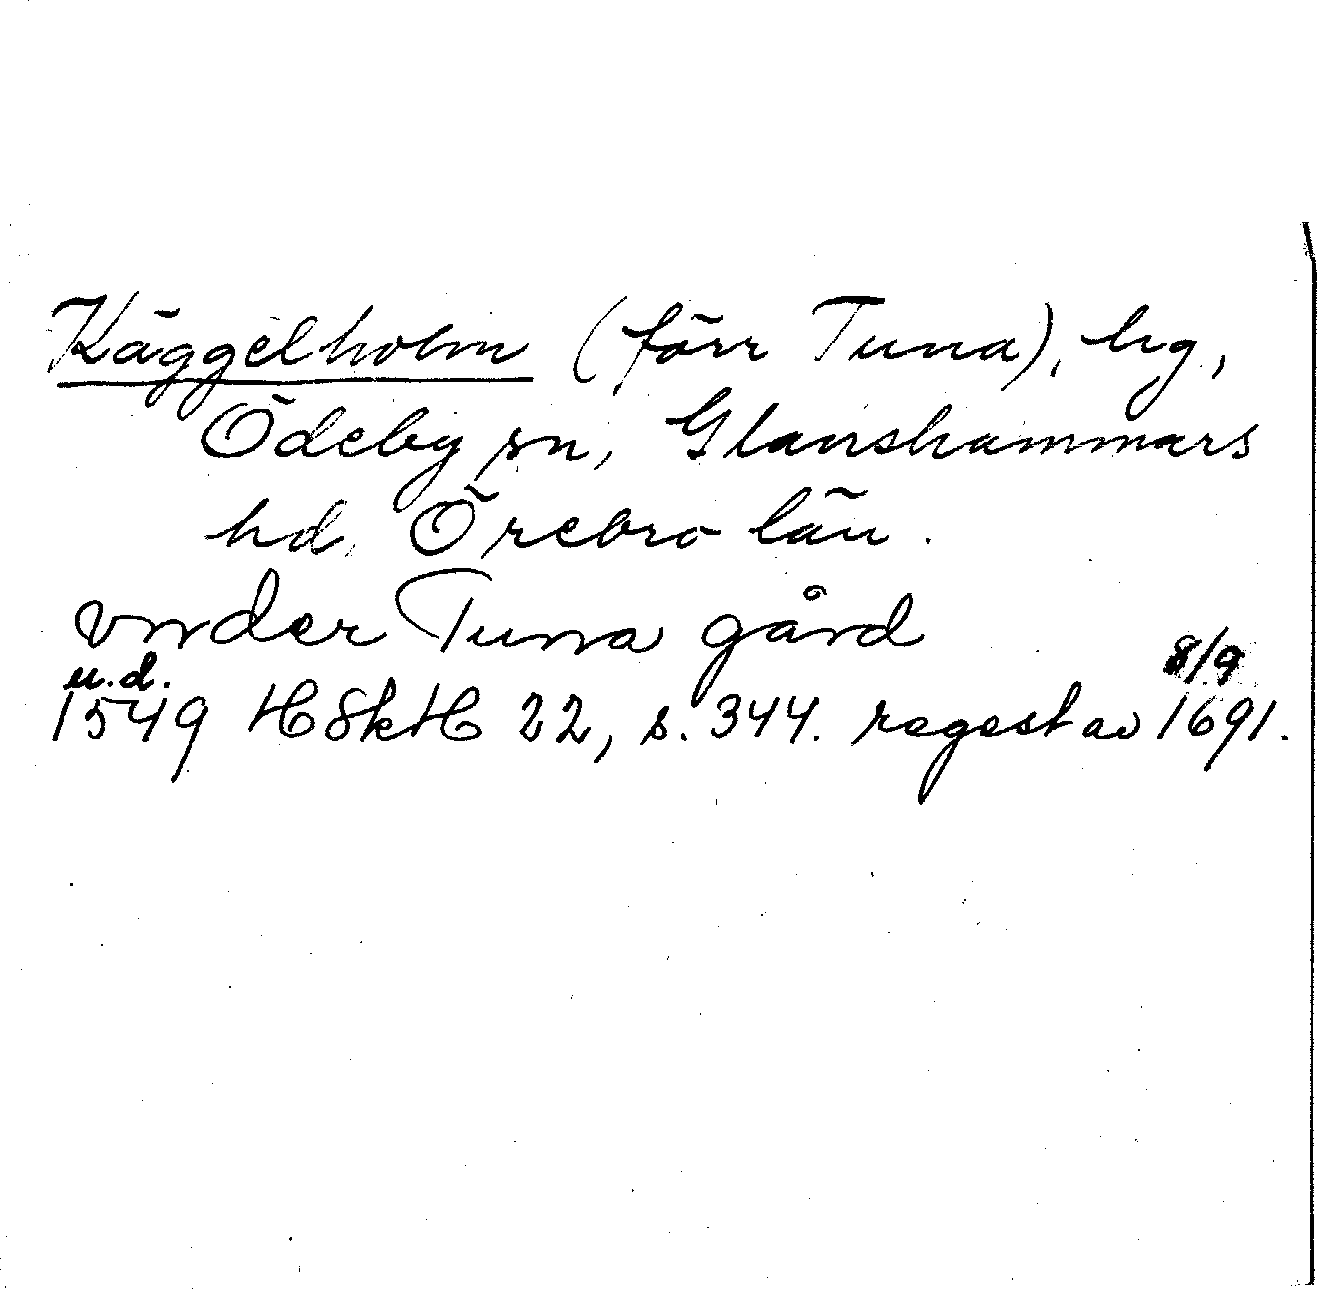 Käggelholm (förr Tuna), hg,
Ödeby sn, Glanshammars
hd, Örebro län.
vnder Tuna gård
u.d. 8/9
1549 HSkH 22, s. 344. regest av 1691.